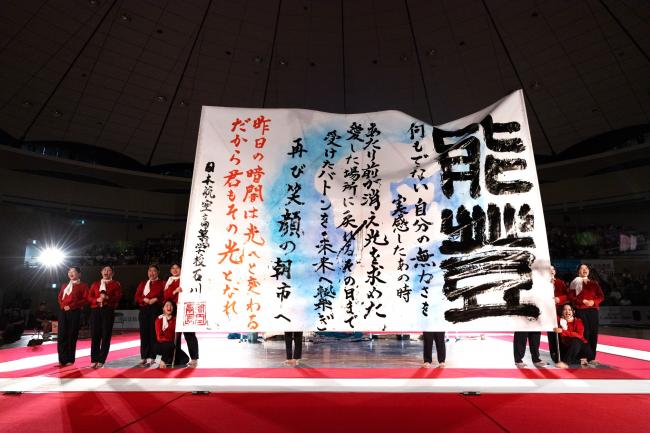 能登
何もでない自分の無力さを
実感したあの時
あたり前が消え光を求めた
愛した場所に戻るその日まで
受けたバトンを未来へ継なぐ
再び笑顔の朝市へ
昨日の暗闇は光へと変わる
だから君もその光となれ
日本航空高等学校石川